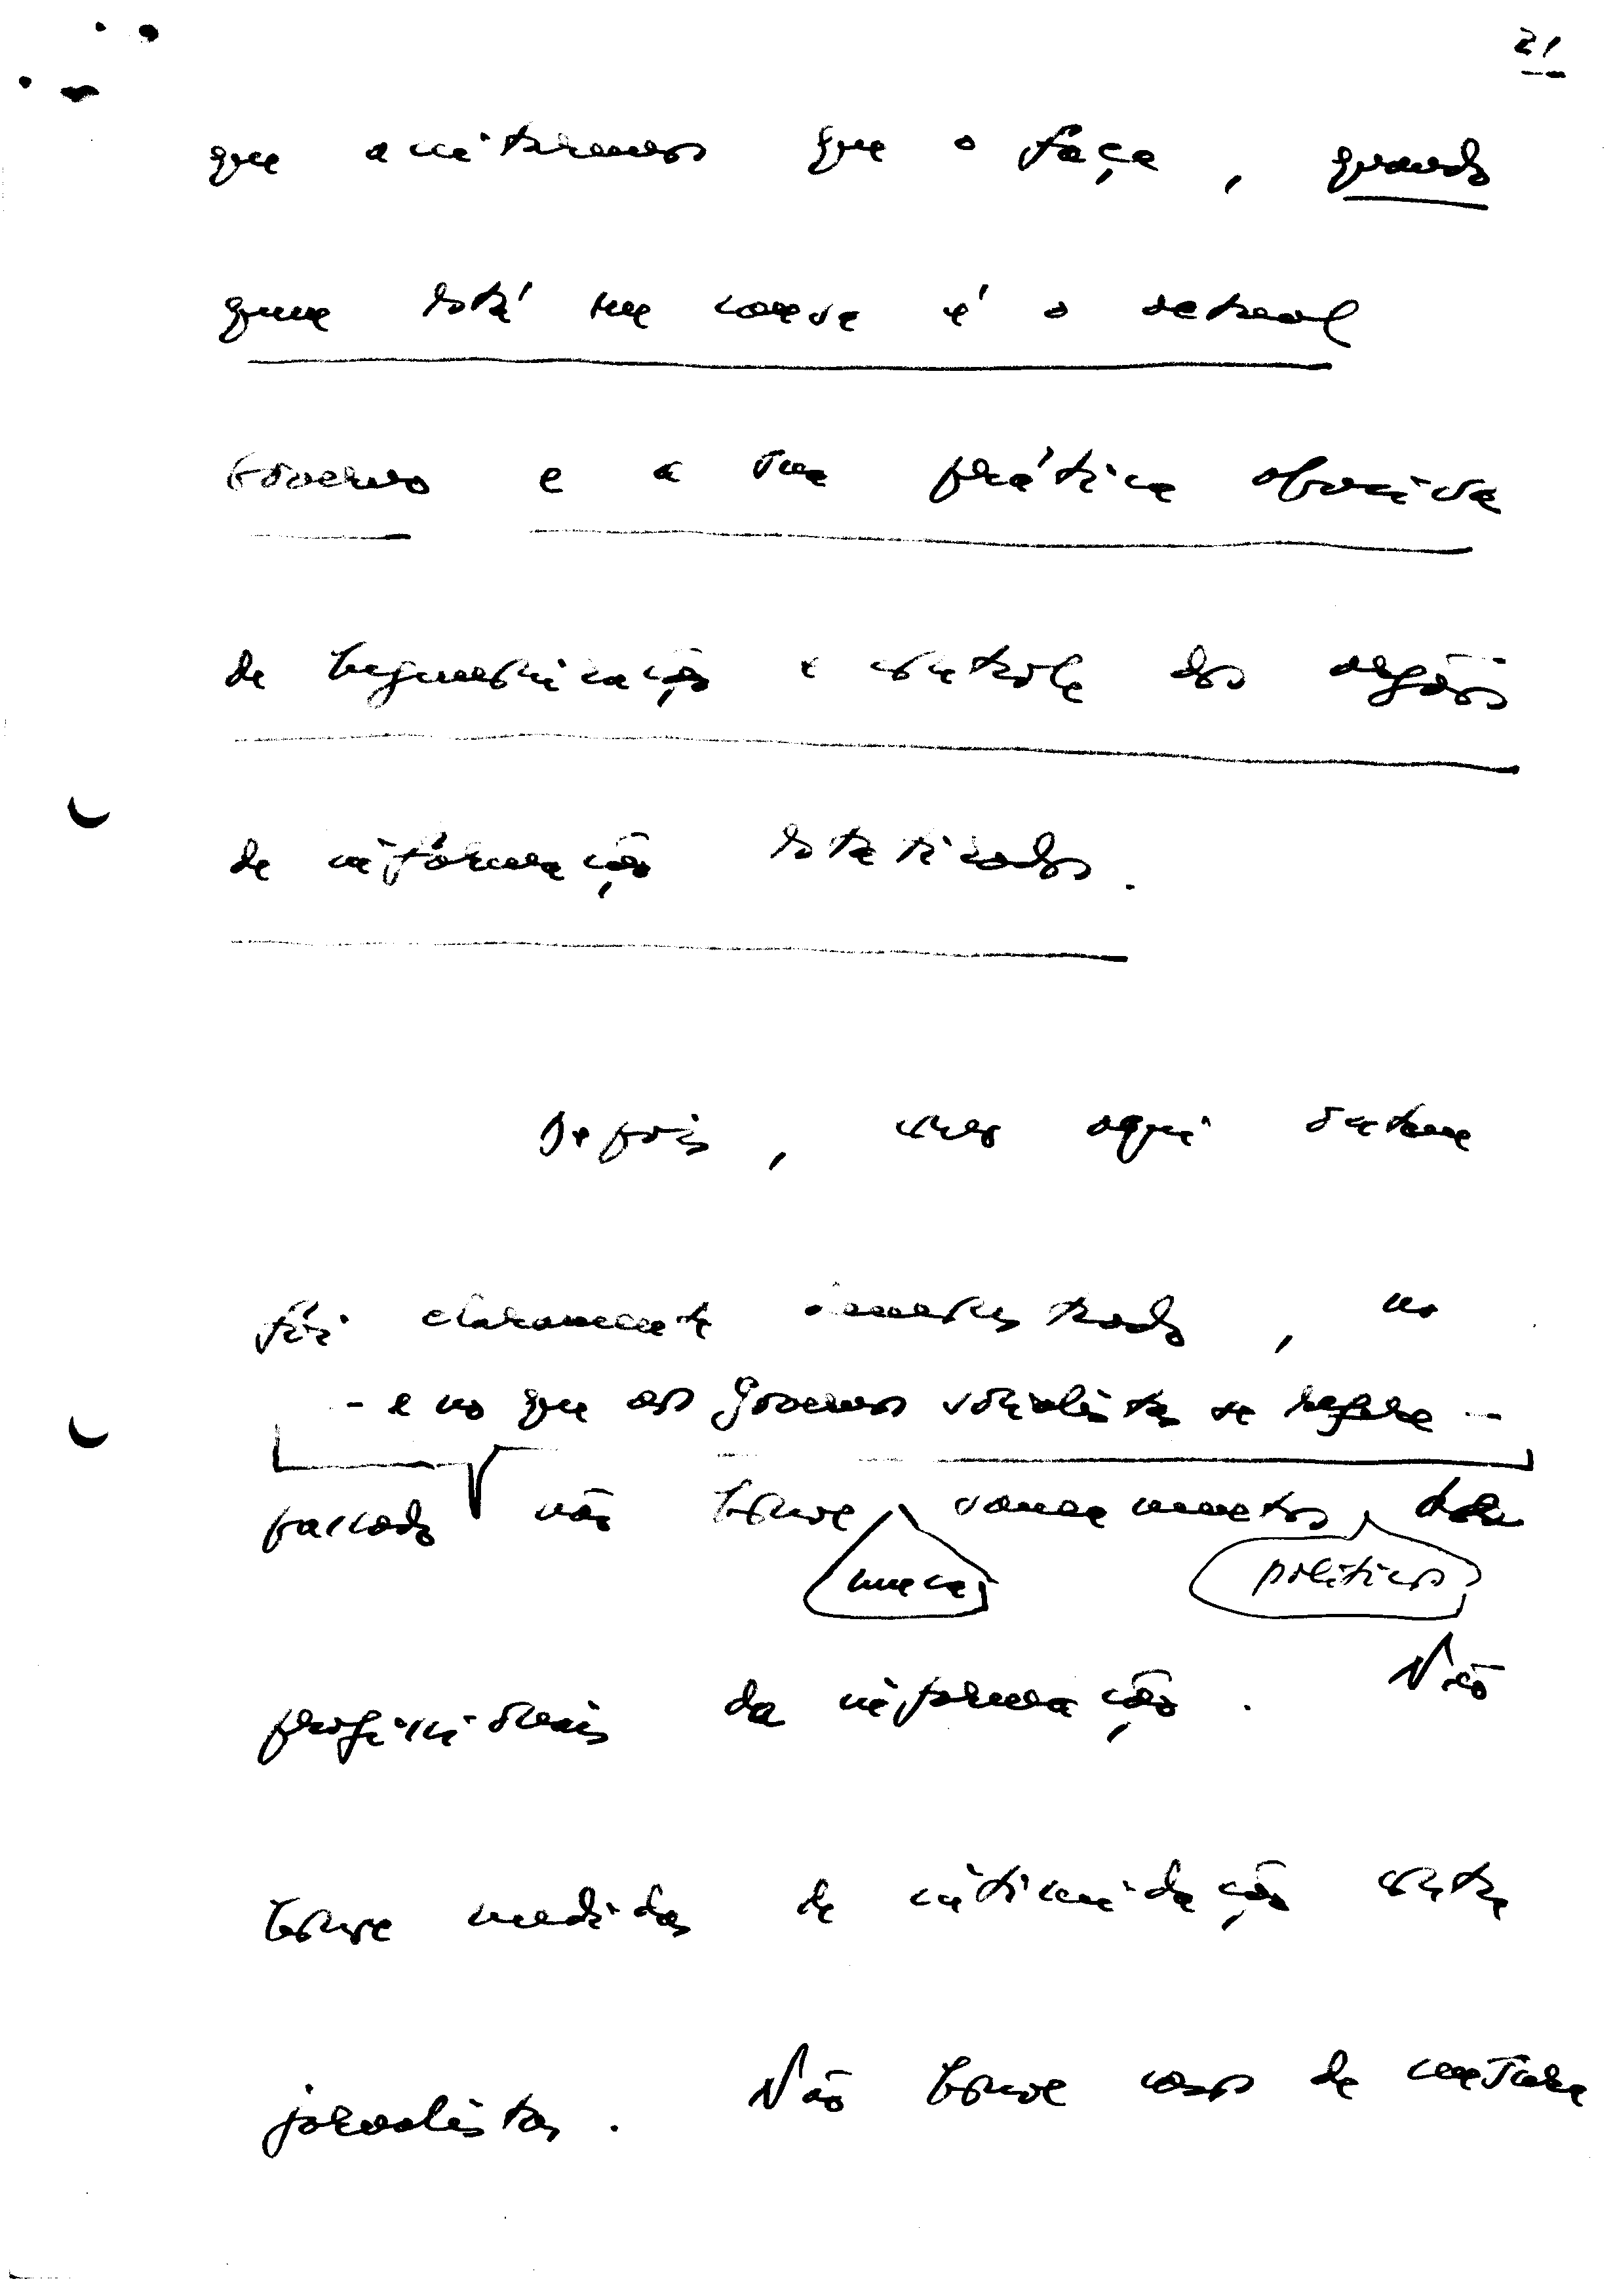 21
que aceitaremos que o faça, quando
quem está em causa é o actual
Governo e a sua prática abusiva
de hegemonização e controle dos orgãos
de informação estatizados.
Depois, mas aqui ontem
foi claramente demonstrado, no
- e no que aos Governos socialistas se refere -
passado não houve saneamentos dos
nunca políticos
profissionais da informação. Não
houve medidas de intimidação contra
jornalistas. Não houve casos de censura